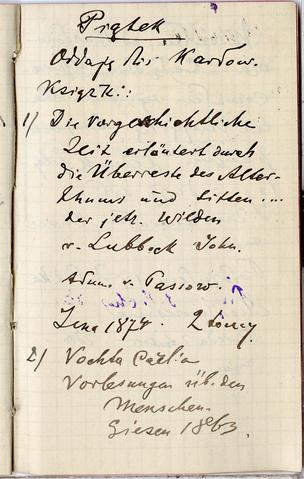 Piątek
Oddaję dla Karłow.
Książki:
1) Die vorgeschichtliche
Zeit erläutert durch
die Überreste des Alter-
thums und Sitten ...
der jetz. Wilden
v. Lubbock John.
v. Passow.
Jena 1874. 2 tomy
2) Vochta
Vorlesungen üb. den
Menschen.
Giesen 1863.